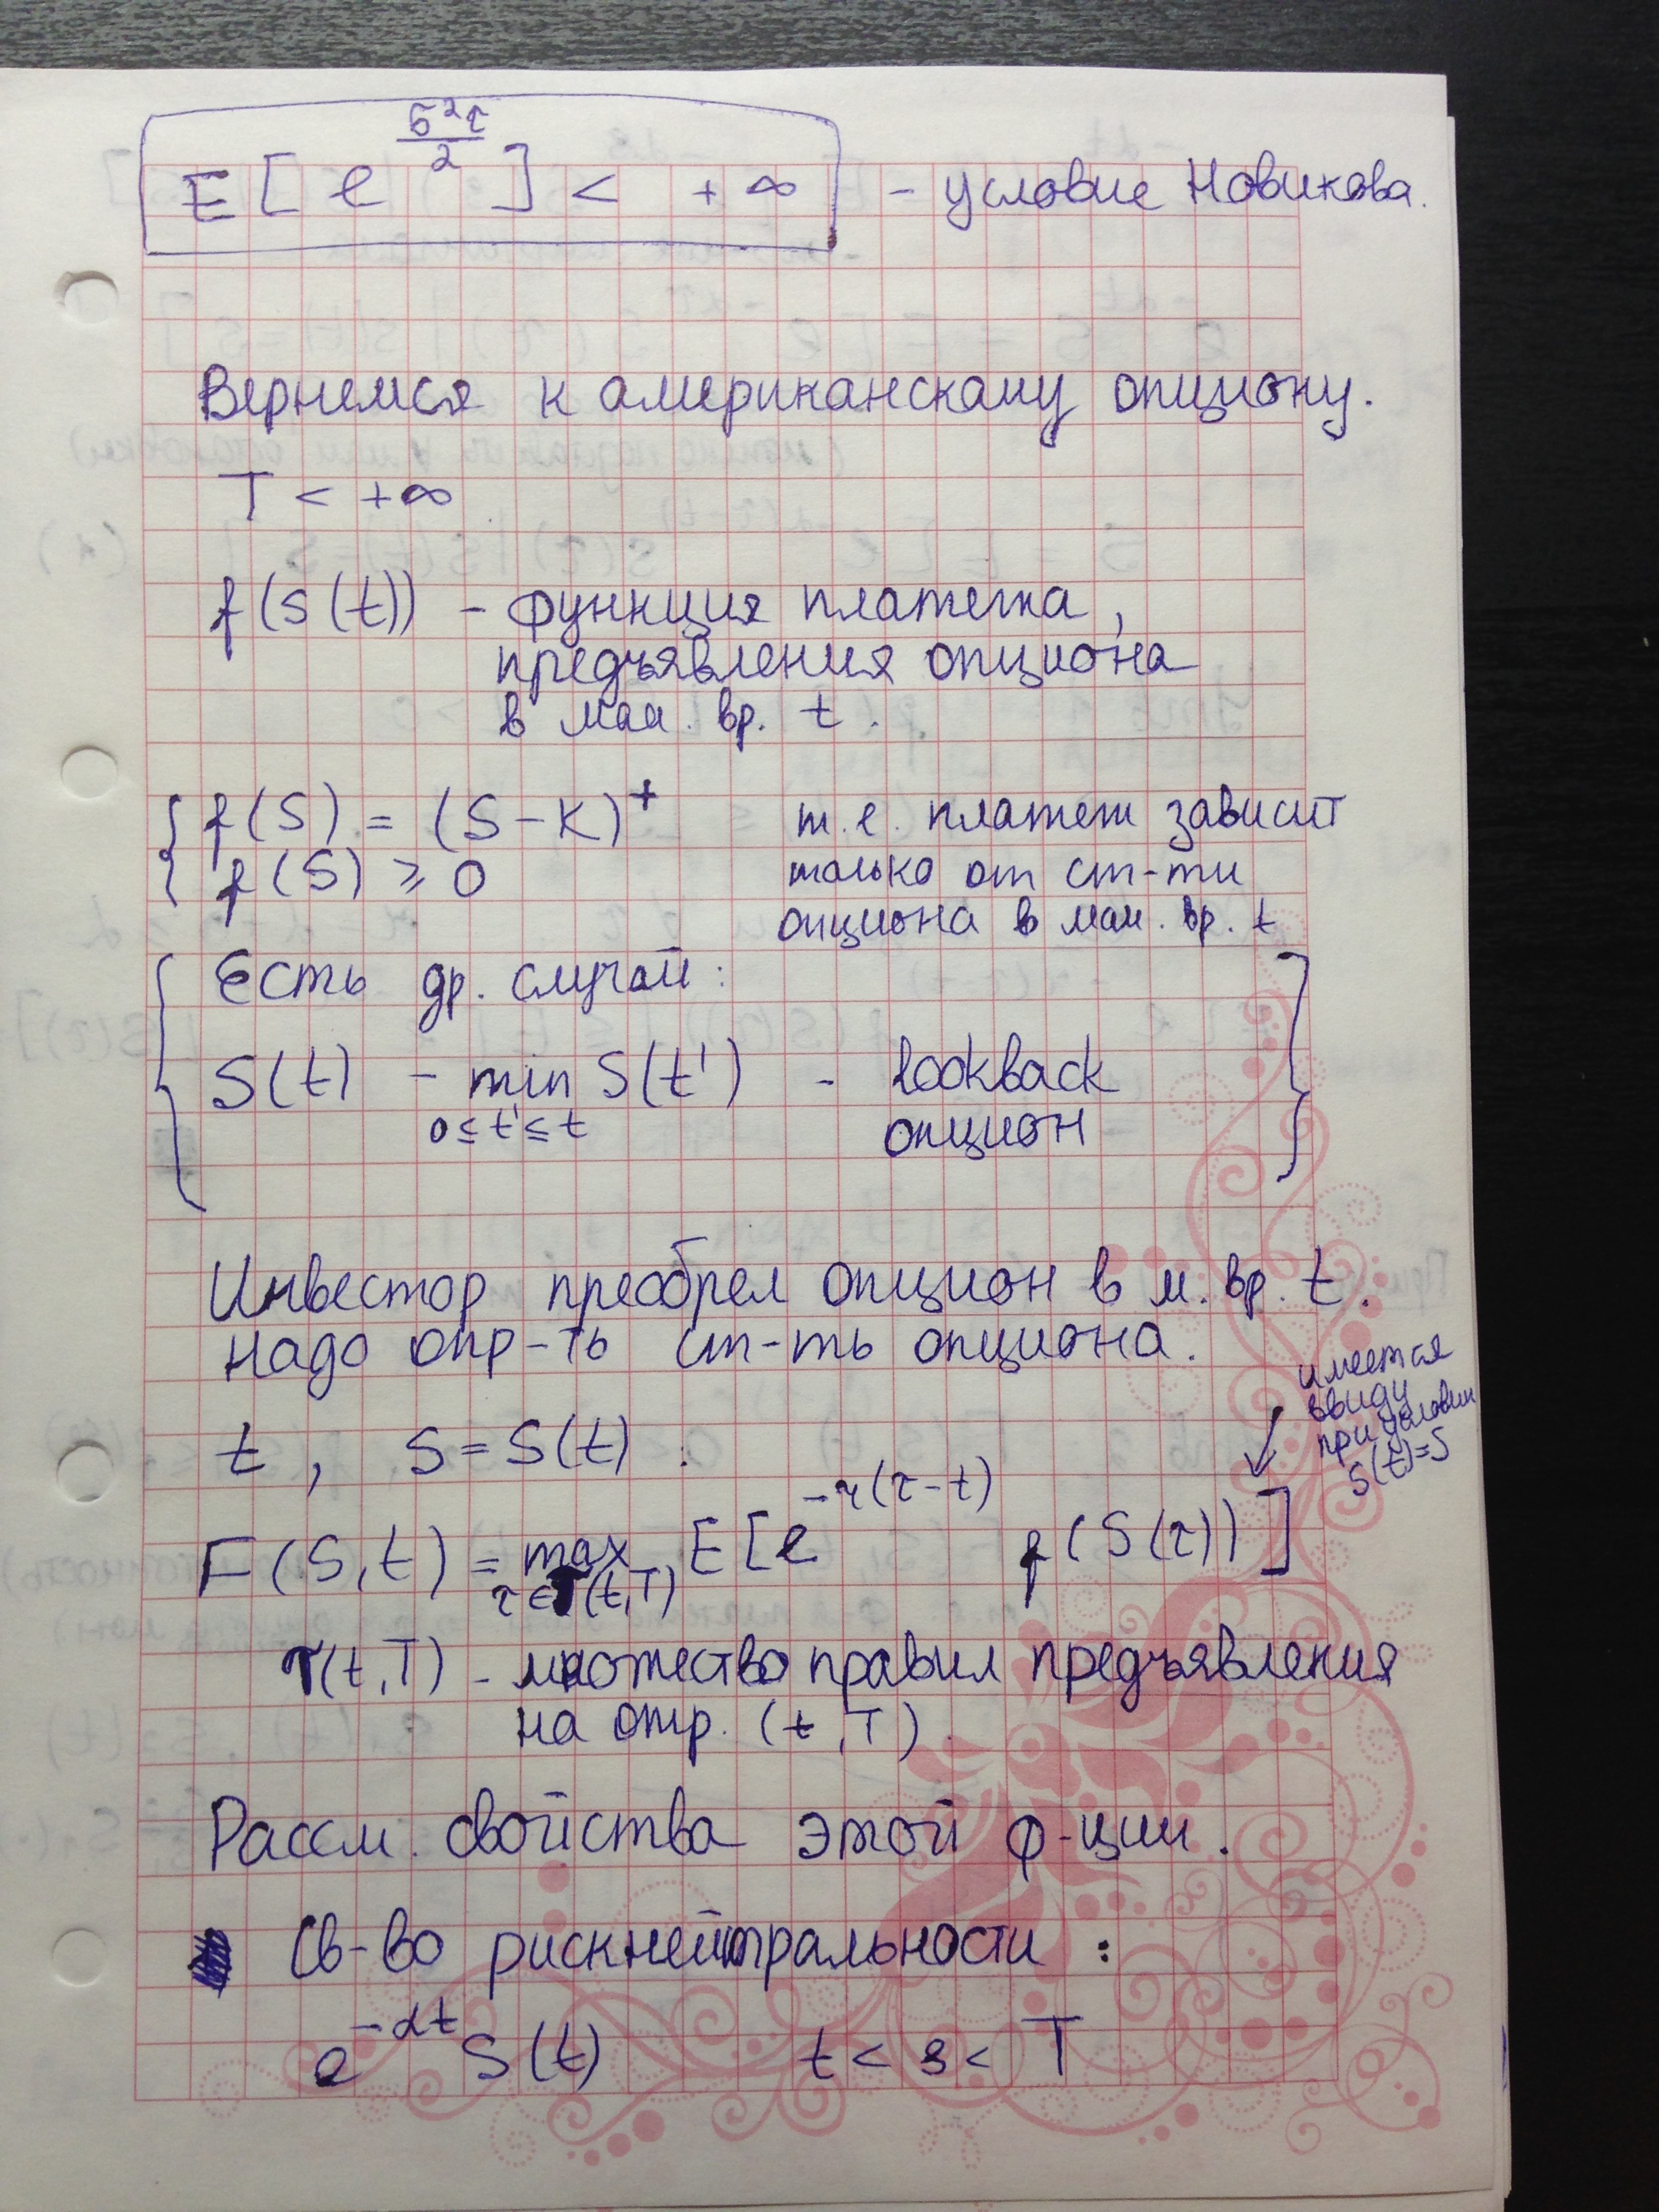 E[e^{σ²τ/2}] < +∞ - условие Новикова.
Вернемся к американскому опциону.
T < +∞
f(S(t)) - функция платежа,
предъявления опциона
в мом. вр. t.
f(S) = (S-K)⁺ т.е. платеж зависит
f(S) ≥ 0 только от ст-ти
опциона в мом. вр. t
Есть др. случай:
S(t) - min S(t') - lookback
0≤t'≤t опцион
Инвестор преобрел опцион в м. вр. t.
надо опр-ть ст-ть опциона.
имеется
ввиду
при условии
S(t)=S
t, S = S(t) :
F(S,t) = max E[e^{-r(τ-t)} f(S(τ))]
τ∈T(t,T)
T(t,T) - множество правил предъявления
на отр. (t,T).
Рассм. свойства этой ф-ции.
Св-во рискнейтральности :
e^{-αt} S(t) t < s < T